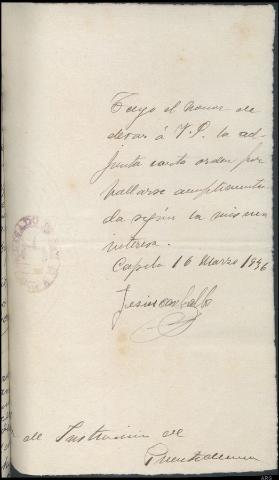 Tengo el honor de
devar á V.S. la ad-
junta carta orden por
hallarse cumplimenta-
da según la misma
interesa.
Capela 16 Marzo 1896
Jesús Carballo
de Instrucción de
Puentedeume